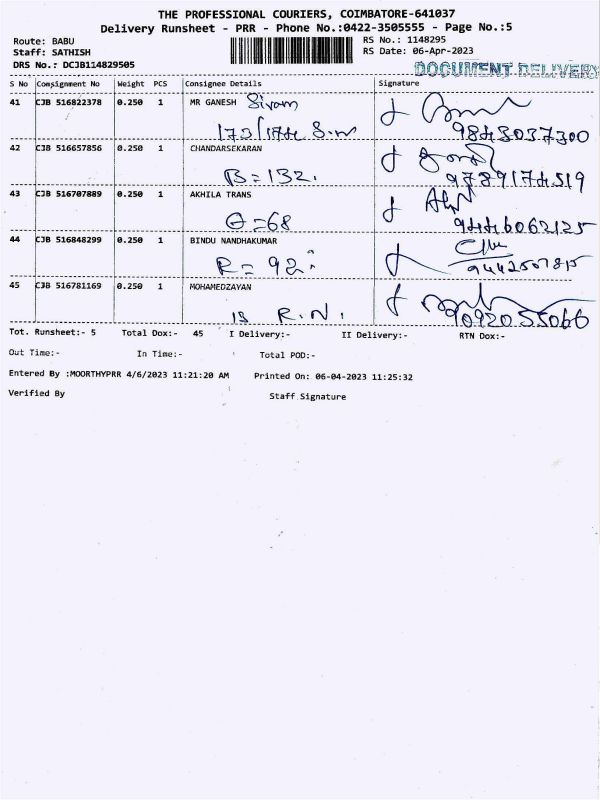 THE PROFESSIONAL COURIERS, COIMBATORE-641037
Delivery Runsheet - PRR - Phone No.:0422-3505555 - Page No.:5
Route: BABU
RS No.: 1148295
Staff: SATHISH
RS Date: 06-Apr-2023
DRS No.: DCJB114829505
DOCUMENT DELIVERY
S No Consignment No Weight PCS Consignee Details Signature
41 CJB 516822378 0.250 1 MR GANESH Sivam
173/174 S.n
9843037300
42 CJB 516657856 0.250 1 CHANDARSEKARAN
B=132.
9789174519
43 CJB 516707889 0.250 1 AKHILA TRANS
=68
9446062125
44 CJB 516848299 0.250 1 BINDU NANDHAKUMAR
R=92
9442507815
45 CJB 516781169 0.250 1 MOHAMEDZAYAN
R.N.
9092055066
Tot. Runsheet:- 5 Total Dox:- 45 I Delivery:- II Delivery:- RTN Dox:-
Out Time:- In Time:- Total POD:-
Entered By :MOORTHYPRR 4/6/2023 11:21:20 AM Printed On: 06-04-2023 11:25:32
Verified By Staff Signature